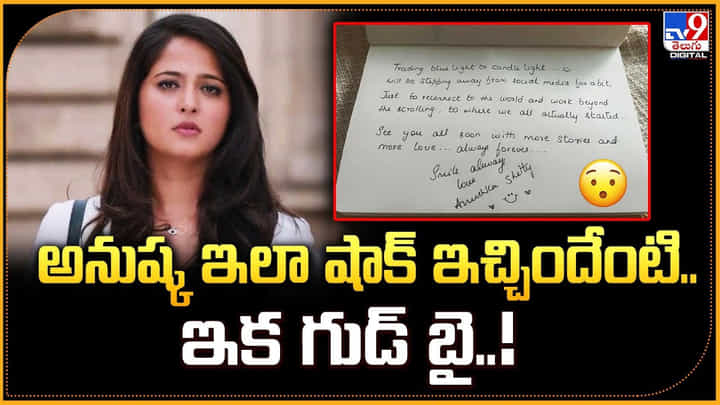 TV9
తెలుగు
DIGITAL
Trading blue light to candle light....
will be stepping away from social media for a bit.
Just to reconnect to the world and work beyond
the scrolling.. to where we all actually started..
See you all soon with more stories and
more love... always forever....
Smile always
love
Anushka Shetty
అనుష్క ఇలా షాక్ ఇచ్చిందేంటి..
ఇక గుడ్ బై..!